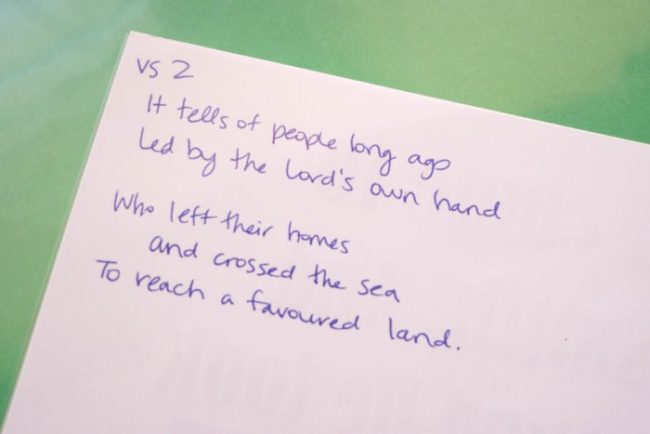 vs 2
It tells of people long ago
Led by the Lord's own hand
Who left their homes
and crossed the sea
To reach a favoured land.